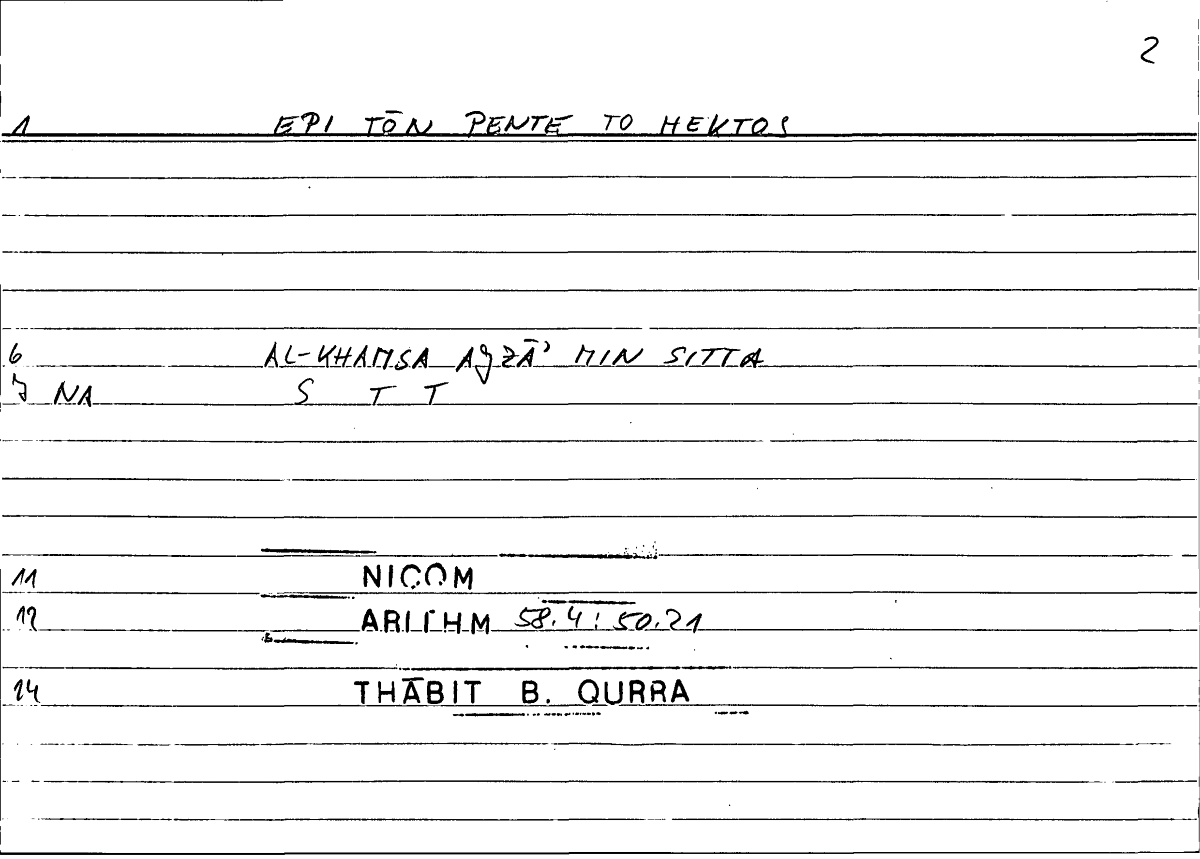 2
1 EPI TŌN PENTE TO HEKTOS
6 AL-KHAMSA AǧZĀʾ MIN SITTA
7 NA S T T
11 NICOM
12 ARITHM 58.4 : 50.21
14 THĀBIT B. QURRA